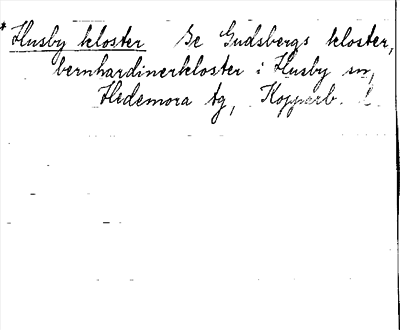 * Husby kloster Se Gudsbergs kloster,
bernhardinerkloster i Husby sn,
Hedemora tg, Kopparb. l.